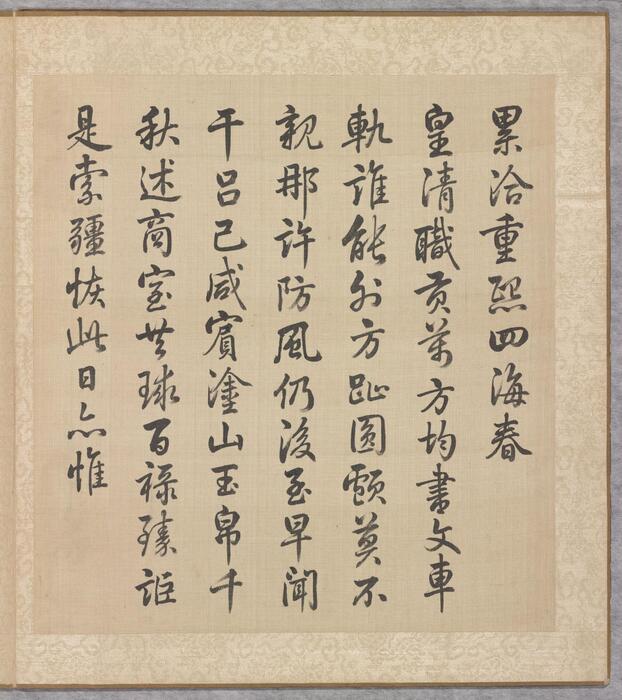 累洽重熙四海春
皇清職貢萬方均書文車
軌誰能外方趾圓顱莫不
親那許防風仍後至早聞
干呂已咸賓塗山玉帛千
秋述商室共球百祿臻詎
是索疆恢此日亦惟